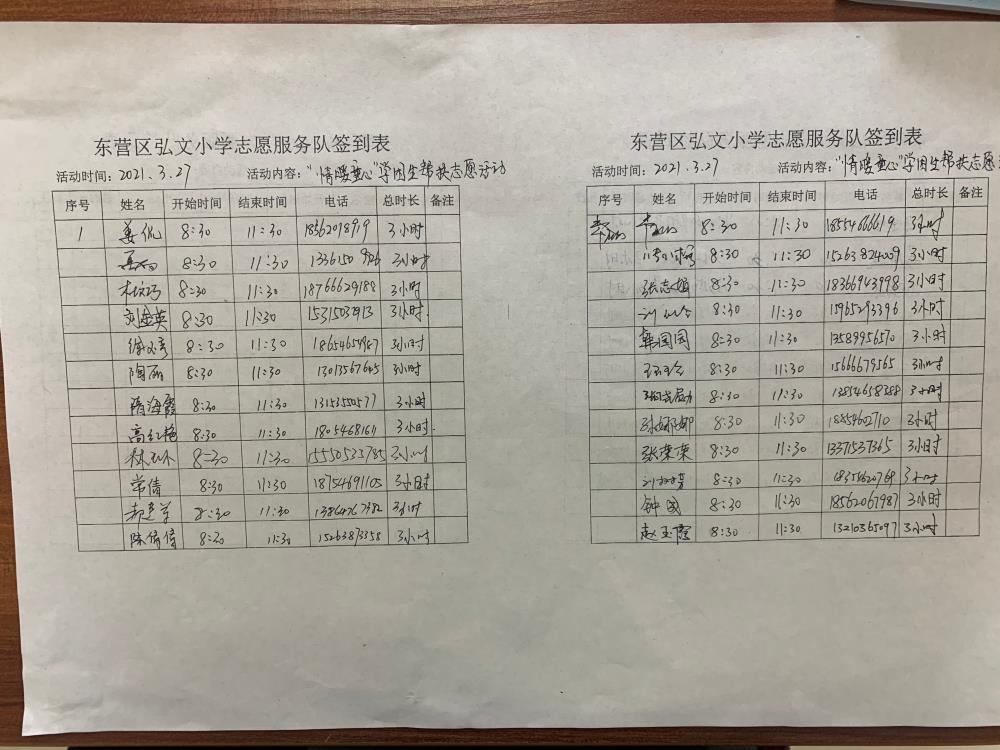 东营区弘文小学志愿服务队签到表
活动时间：2021.3.27 活动内容："情暖童心"学困生帮扶志愿活动
序号 姓名 开始时间 结束时间 电话 总时长 备注
1 姜侃 8:30 11:30 18562018919 3小时
8:30 11:30 3小时
8:30 11:30 18766629188 3小时
刘金英 8:30 11:30 3小时
徐文彦 8:30 11:30 18654654987 3小时
陶丽 8:30 11:30 13013567605 3小时
隋海霞 8:30 11:30 13153550577 3小时
高红艳 8:30 11:30 18054681611 3小时
8:30 11:30 15550533785 3小时
常倩 8:30 11:30 18754691105 3小时
8:30 11:30 3小时
陈倩倩 8:30 11:30 15263873358 3小时
东营区弘文小学志愿服务队签到表
活动时间：2021.3.27 活动内容："情暖童心"学困生帮扶志愿活动
序号 姓名 开始时间 结束时间 电话 总时长 备注
8:30 11:30 18554666619 3小时
8:30 11:30 15263824009 3小时
张志娟 8:30 11:30 18366943998 3小时
8:30 11:30 15965293396 3小时
韩园园 8:30 11:30 13589956570 3小时
8:30 11:30 15666679565 3小时
8:30 11:30 13854658388 3小时
孙娜娜 8:30 11:30 18854602710 3小时
张荣荣 8:30 11:30 13371537365 3小时
8:30 11:30 18354620769 3小时
钟国 8:30 11:30 18562067987 3小时
赵玉霞 8:30 11:30 13210365097 3小时